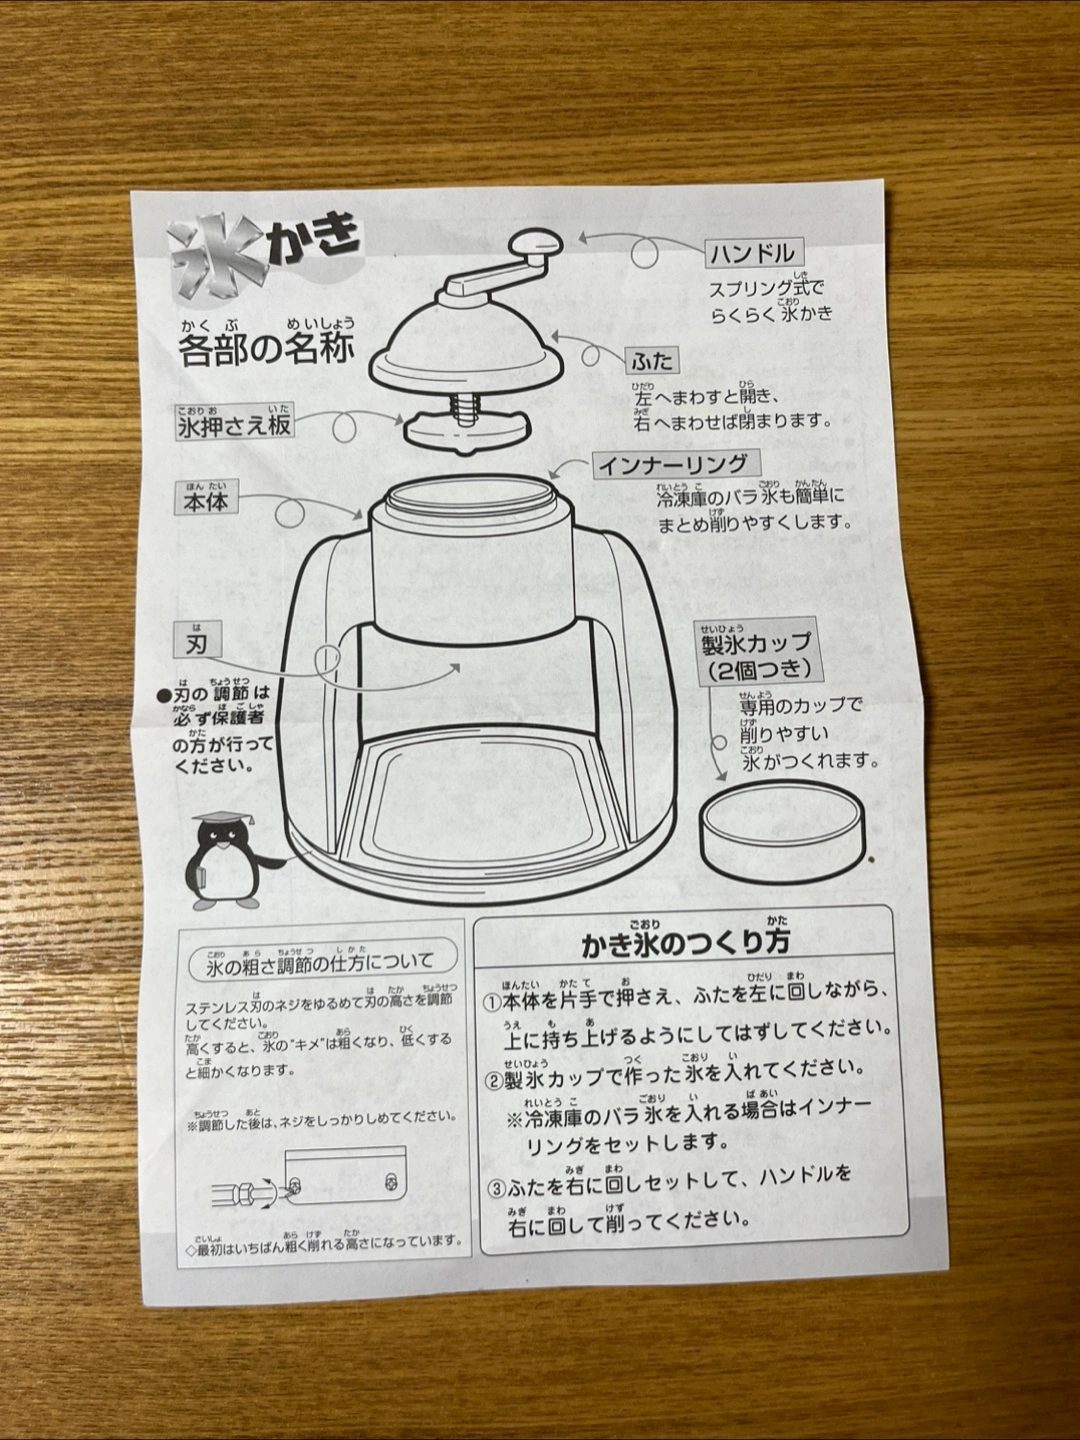 氷かき
各部の名称
ハンドル
スプリング式で
らくらく氷かき
ふた
左へまわすと開き、
右へまわせば閉まります。
氷押さえ板
インナーリング
冷凍庫のバラ氷も簡単に
まとめ削りやすくします。
本体
刃
●刃の調節は
必ず保護者
の方が行って
ください。
製氷カップ
(2個つき)
専用のカップで
削りやすい
氷がつくれます。
氷の粗さ調節の仕方について
ステンレス刃のネジをゆるめて刃の高さを調節
してください。
高くすると、氷の“キメ”は粗くなり、低くする
と細かくなります。
※調節した後は、ネジをしっかりしめてください。
◇最初はいちばん粗く削れる高さになっています。
かき氷のつくり方
①本体を片手で押さえ、ふたを左に回しながら、
上に持ち上げるようにしてはずしてください。
②製氷カップで作った氷を入れてください。
※冷凍庫のバラ氷を入れる場合はインナー
リングをセットします。
③ふたを右に回しセットして、ハンドルを
右に回して削ってください。